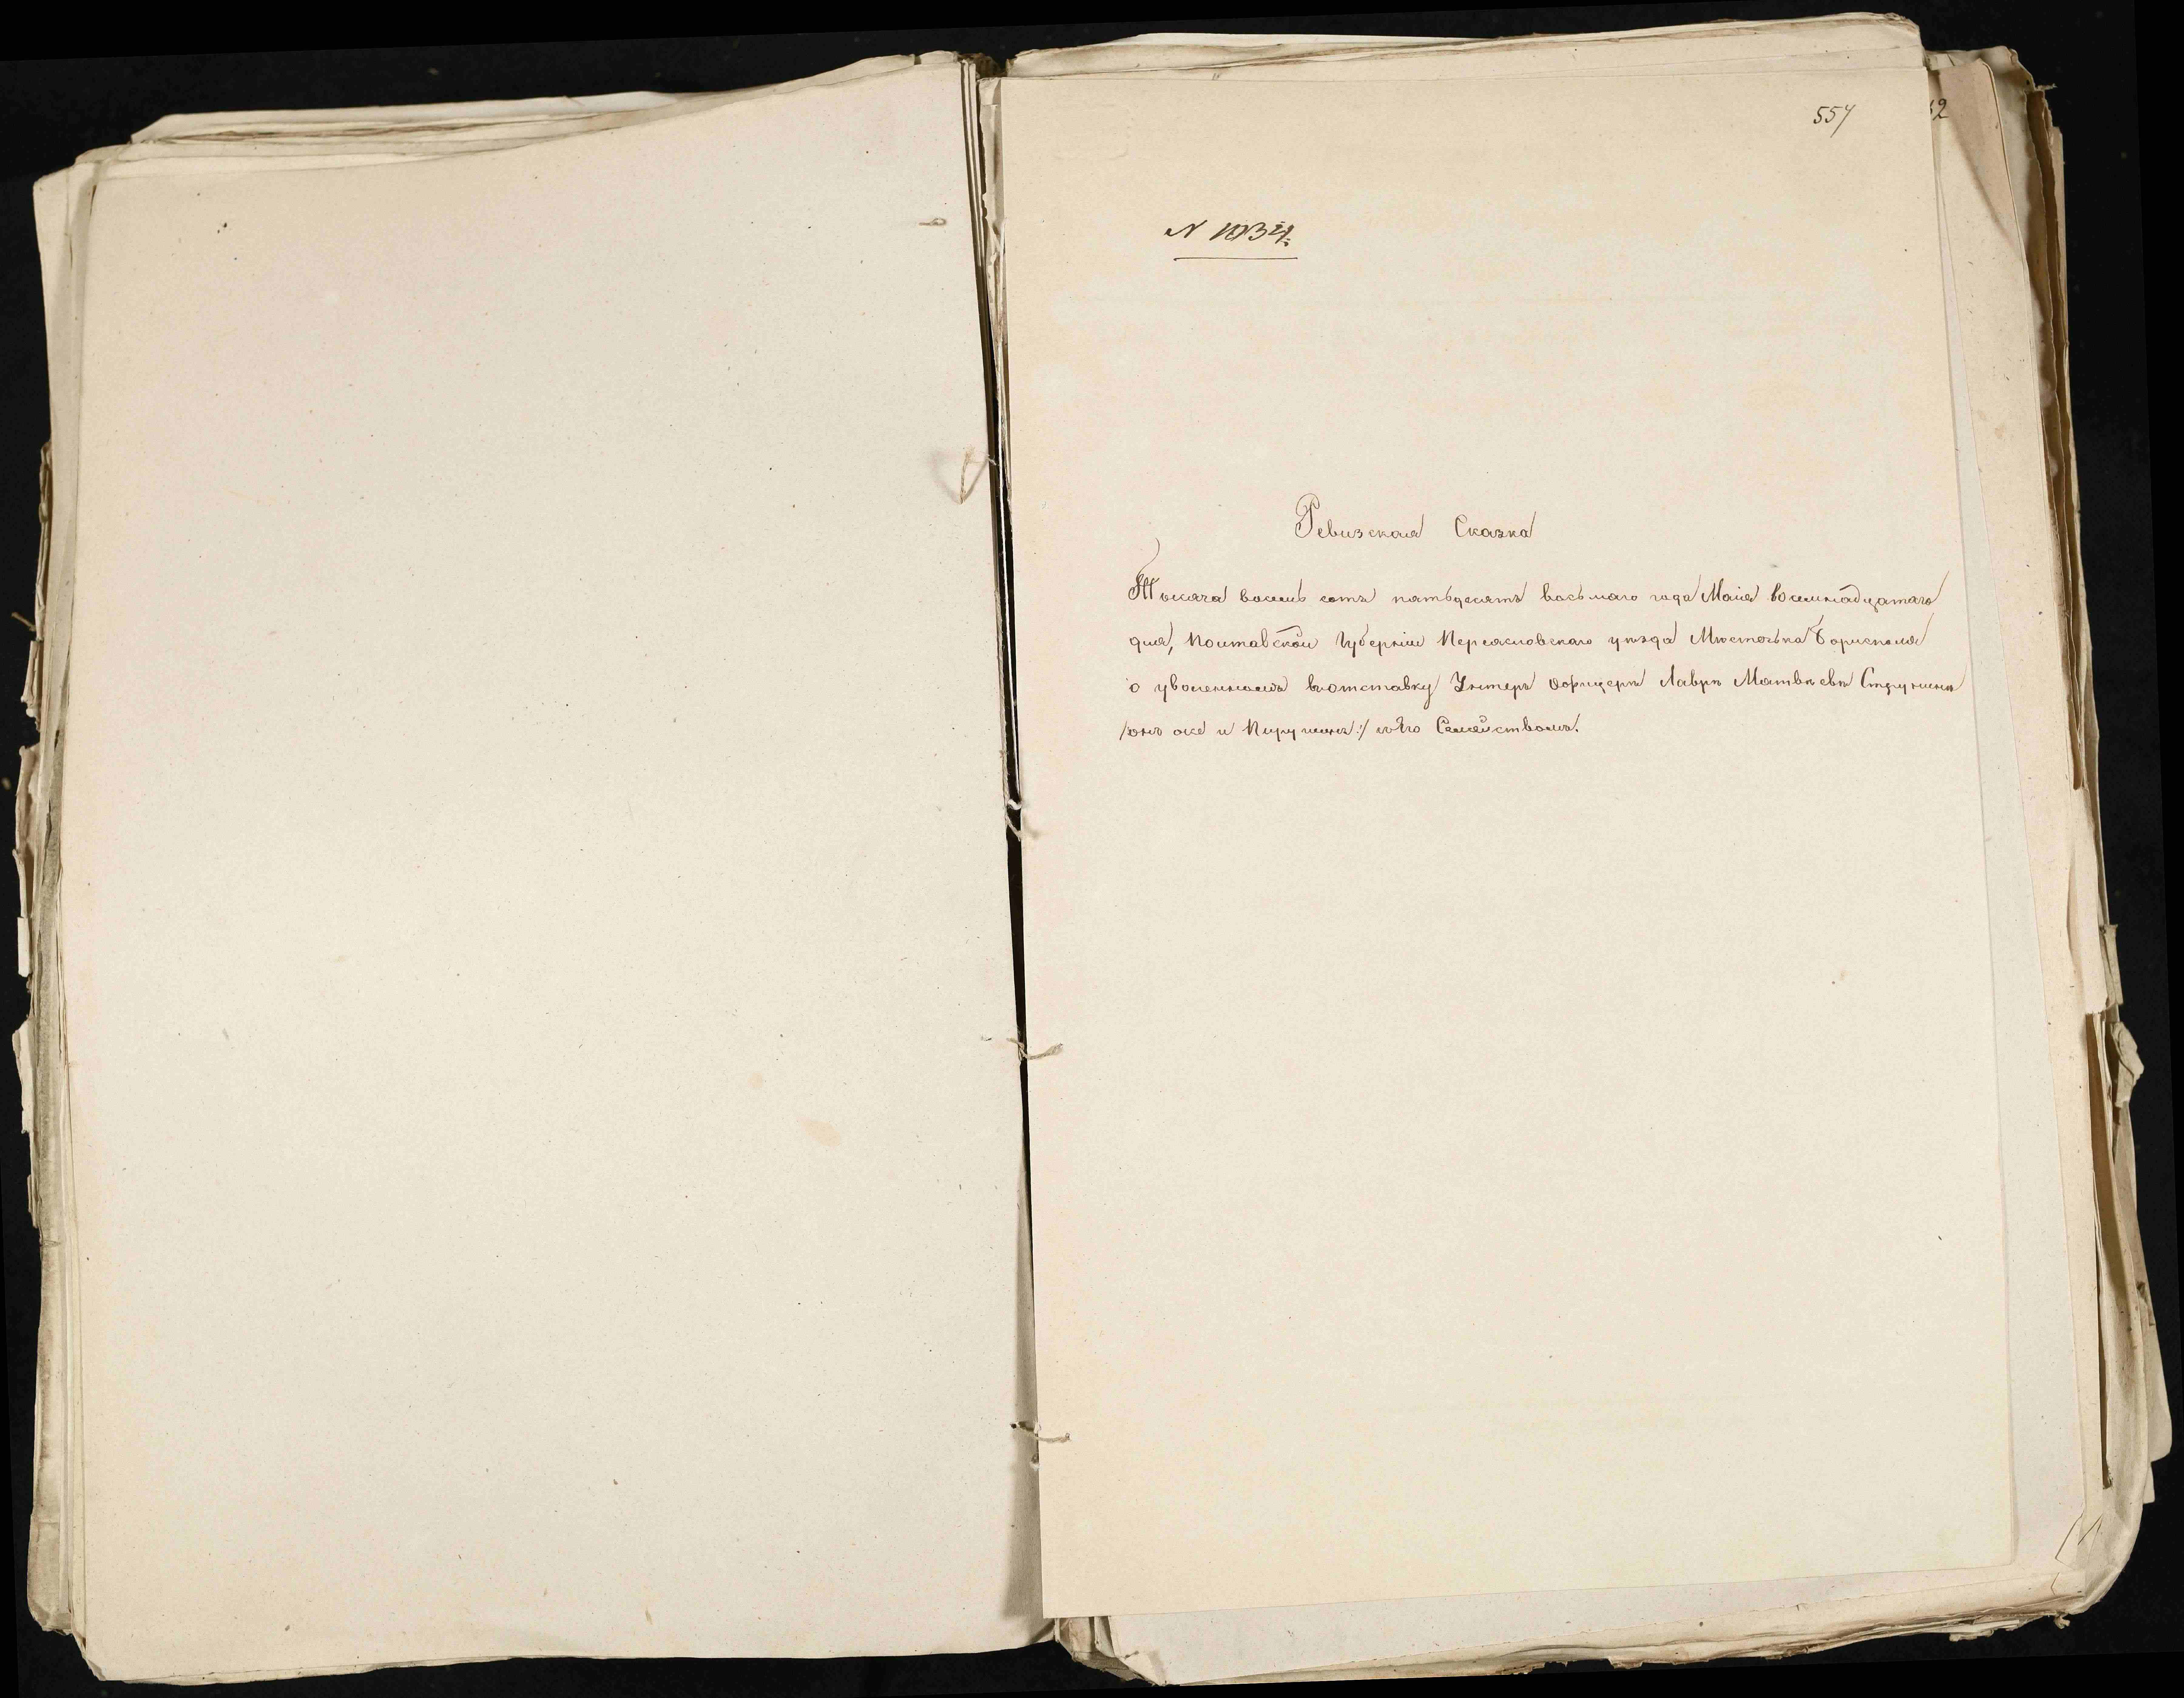 557
32
N 1034.
Ревизская Сказка
Тысяча восемь сотъ пятьдесятъ восьмаго года Маія восемнадцатаго
дня, Полтавской Губерніи Переясловскаго уѣзда Мѣстечька Борисполя
о уволенномъ вотставку Унтеръ Оофицеръ Лавръ Матвѣевъ
/:онъ же и :/ и Его Семействомъ.